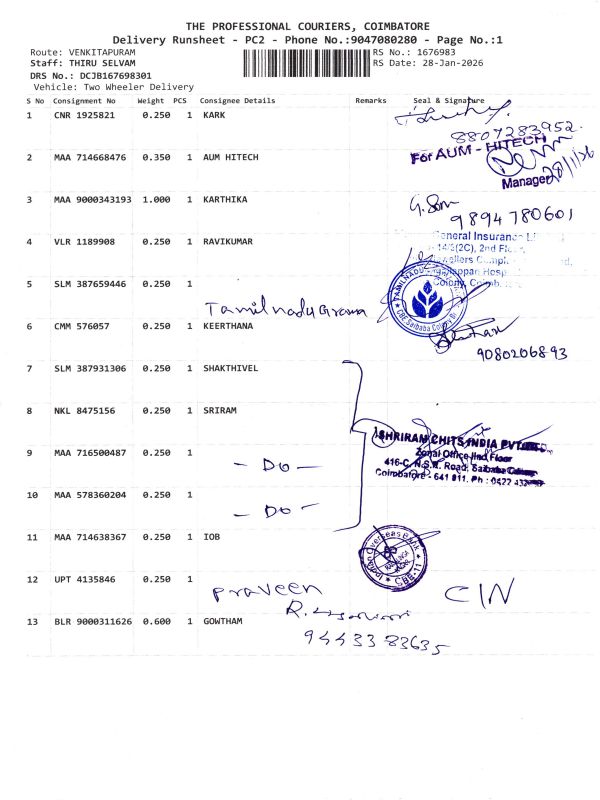 THE PROFESSIONAL COURIERS, COIMBATORE
Delivery Runsheet - PC2 - Phone No.:9047080280 - Page No.:1
Route: VENKITAPURAM RS No.: 1676983
Staff: THIRU SELVAM RS Date: 28-Jan-2026
DRS No.: DCJB167698301
Vehicle: Two Wheeler Delivery
S No Consignment No Weight PCS Consignee Details Remarks Seal & Signature
1 CNR 1925821 0.250 1 KARK
8807283952
2 MAA 714668476 0.350 1 AUM HITECH For AUM - HITECH
Manager 28/1/26
3 MAA 9000343193 1.000 1 KARTHIKA
9894780601
4 VLR 1189908 0.250 1 RAVIKUMAR General Insurance
14/3(2C), 2nd Floor,
Colony, Coimb
5 SLM 387659446 0.250 1 Tamilnadu Grama
TAMILNADU CBE Saibaba Colony Br
6 CMM 576057 0.250 1 KEERTHANA
9080206893
7 SLM 387931306 0.250 1 SHAKTHIVEL
8 NKL 8475156 0.250 1 SRIRAM
SHRIRAM CHITS INDIA PVT
Zonal Office IInd Floor
416-C, N.S.R. Road, Saibaba Colony
Coimbatore - 641 011. Ph : 0422
9 MAA 716500487 0.250 1 - Do -
10 MAA 578360204 0.250 1 - Do -
11 MAA 714638367 0.250 1 IOB
Indian Overseas Bank CBE-11
12 UPT 4135846 0.250 1 Praveen CIN
13 BLR 9000311626 0.600 1 GOWTHAM
94433 83635